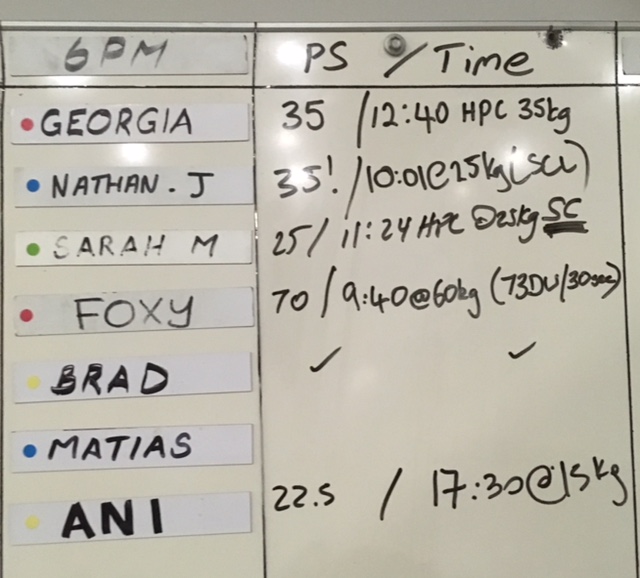 6PM PS / Time
GEORGIA 35 / 12:40 HPC 35kg
NATHAN . J 35! / 10:01@25kg (SCL)
SARAH M 25 / 11:24 HPC @25kg SC
FOXY 70 / 9:40@60kg (73DU/30sec)
BRAD ✓ ✓
MATIAS
ANI 22.5 / 17:30@15kg